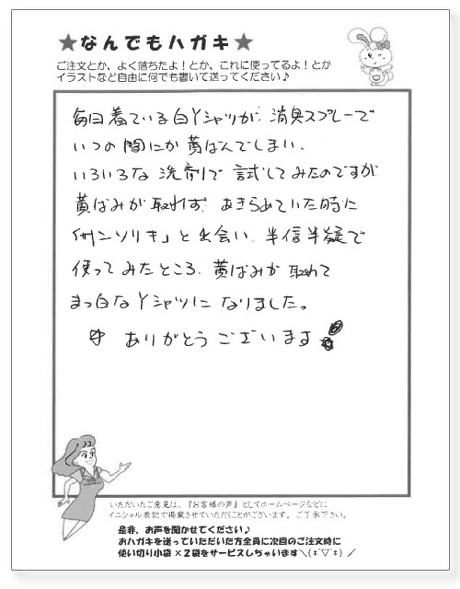 ★なんでもハガキ★
ご注文とか、よく落ちたよ!とか、これに使ってるよ!とか
イラストなど自由に何でも書いて送ってください♪
毎日着ている白Yシャツが、消臭スプレーで
いつの間にか黄ばんでしまい、
いろいろな洗剤で試してみたのですが
黄ばみが取れず、あきらめていた時に
「サンソリキ」と出会い、半信半疑で
使ってみたところ、黄ばみが取れて
まっ白なYシャツになりました。
ありがとうございます!
いただいたご意見は、『お客様の声』としてホームページなどに
イニシャル表記で掲載させていただくことがございます。ご了承下さい。
是非、お声を聞かせてください♪
おハガキを送っていただいた方全員に次回のご注文時に
使い切り小袋×2袋をサービスしちゃいます＼(*ﾟ▽ﾟ*)／